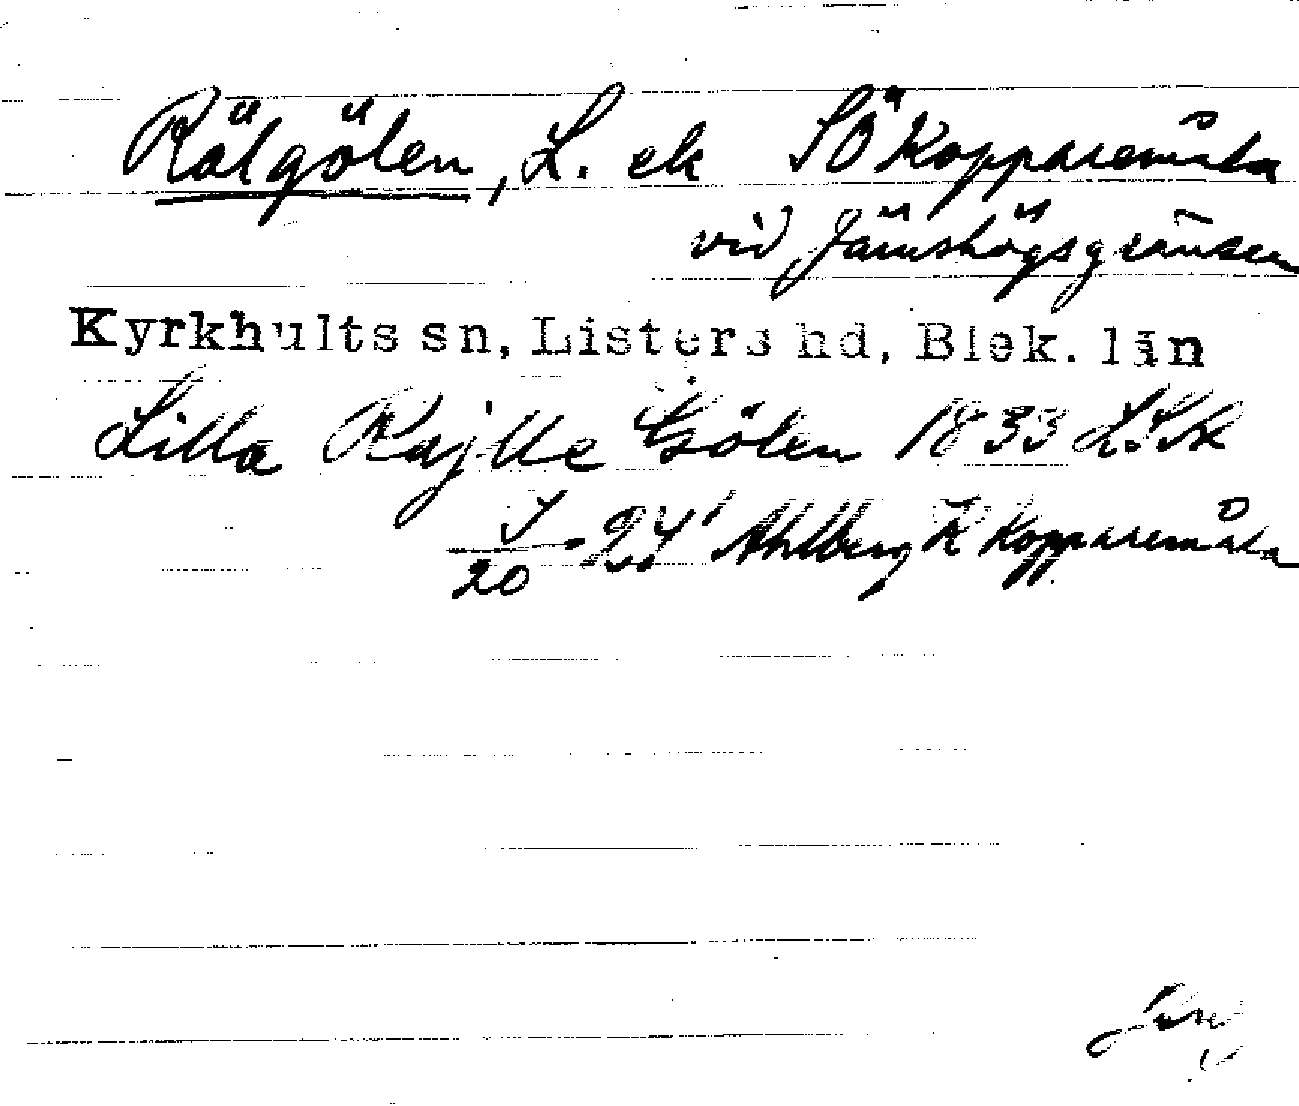 Rälgölen, L. ek SÖ Kopparemåla
vid Jämshögsgränsen
Kyrkhults sn, Listers hd, Blek. län
Lilla Rajlle Gölen 1833 LSK
20 Ahlberg K Kopparemåla